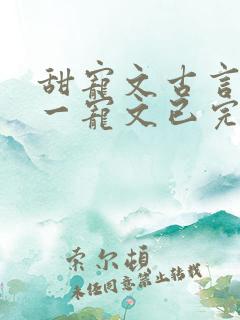 甜寵文古言
一寵文已完
索尔顿
未经同意禁止转载